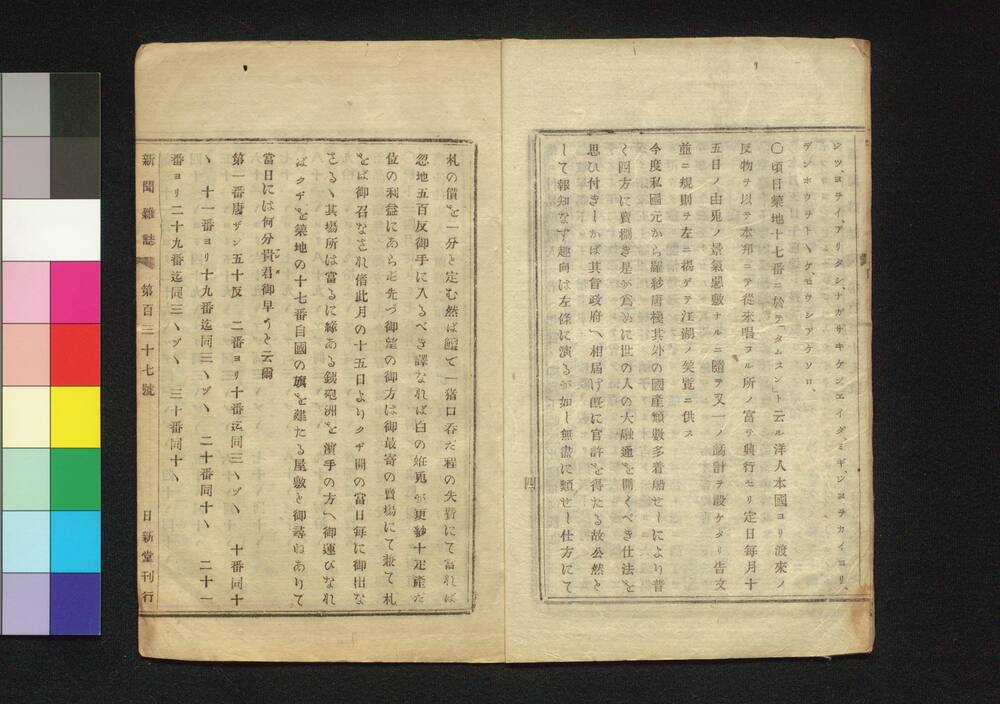 シツヨライ、アリタシ、ナガサキケンエイダミギ、ジヨヲカイヨリ、
デンホウチトヽケ、モウシアケソロ、
〇頃日築地十七番ニ於テ「タムスン」ト云ル洋人本國ヨリ渡來ノ
反物ヲ以テ本邦ニテ從來唱フル所ノ富ヲ興行セリ定日毎月十
五日ノ由兎ノ景氣惡敷ナルニ隨ヲ又一ノ謀計ヲ設ケタリ告文
並ニ規則ヲ左ニ揚ゲテ江湖ノ笑覽ニ供ス
今度私國元から羅紗唐棧其外の國産類數多着船せしにより普
く四方に賣捌き是が爲めに世の人の大融通を開くべき仕法を
思ひ付きしかば其旨政府へ相届け既に官許を得たる故公然と
して報知なす趣向は左條に演るが如し無盡に類せし仕方にて
四
札の價を一分と定む然ば譬て一猪口呑だ程の失費にて當れば
忽地五百反御手に入るべき譯なれば白の姙兎が更紗十疋産だ
位の利益にあらモ先づ御望の御方は御最寄の賣塲にて兼て札
をば御召なされ偖此月の十五日よりクヂ開の當日毎に御出な
さるヽ其塲所は當るに緣ある銕砲洲を濱手の方へ御運びなれ
ばクヂを築地の十七番自國の旗を建たる屋敷と御尋ねありて
當日には何分貴君御早うと云爾
第一番唐ザン五十反　二番ヨリ十番迄同三ヽヅヽ　十番同十
ヽ　十一番ヨリ十九番迄同三ヽヅヽ　二十番同十ヽ　二十一
番ヨリ二十九番迄同三ヽヅヽ　三十番同十ヽ
新聞雜誌　第百三十七號　日新堂刊行